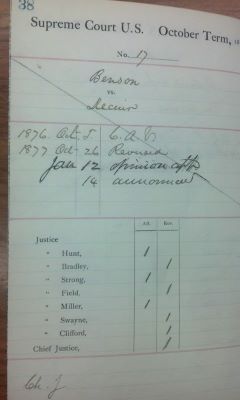 38
Supreme Court U.S. October Term, 18
No. 17
Benson
vs.
Decuir
1876 Oct 5 C. A. V
1877 Oct 26 Reversed
Jan 12 opinion
14 announced
Aff. Rev.
Justice
" Hunt, 1
" Bradley, 1
" Strong, 1
" Field, 1
" Miller, 1
" Swayne, 1
" Clifford, 1
Chief Justice, 1
Ch. J